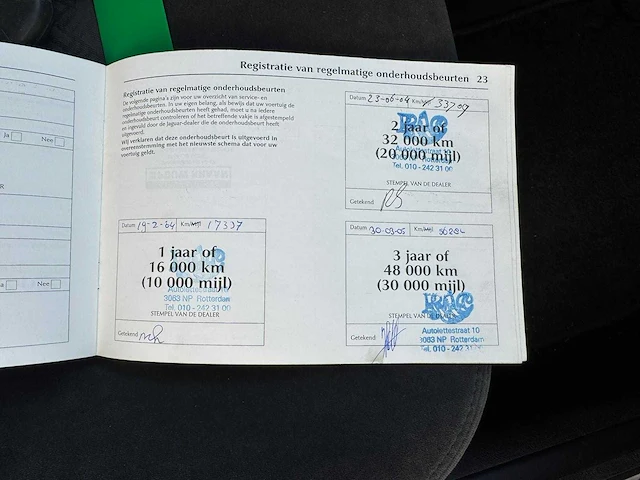 Registratie van regelmatige onderhoudsbeurten 23
Registratie van regelmatige onderhoudsbeurten
De volgende pagina's zijn voor uw overzicht van service- en
onderhoudsbeurten. In uw eigen belang, als bewijs dat uw voertuig de
regelmatige onderhoudsbeurten heeft gehad, moet u na iedere
onderhoudsbeurt controleren of het betreffende vakje is afgestempeld
en ingevuld door de Jaguar-dealer die de onderhoudsbeurt heeft
uitgevoerd.
Wij verklaren dat deze onderhoudsbeurt is uitgevoerd in
overeenstemming met het nieuwste schema dat voor uw
voertuig geldt.
Ja
Nee
Nee
Datum 19-2-04 Km/Mijl 17337
1 jaar of
16 000 km
(10 000 mijl)
Autolettestraat 10
3083 NP Rotterdam
Tel. 010 - 242 31 00
STEMPEL VAN DE DEALER
Getekend
Datum 23-06-04 Km/Mijl 33709
2 jaar of
32 000 km
(20 000 mijl)
Autolettestraat 10
Rotterdam
Tel. 010 - 242 31 00
STEMPEL VAN DE DEALER
Getekend
Datum 30-03-05 Km/Mijl
3 jaar of
48 000 km
(30 000 mijl)
STEMPEL VAN DE DEALER
Autolettestraat 10
3083 NP Rotterdam
Tel. 010 - 242 31
Getekend